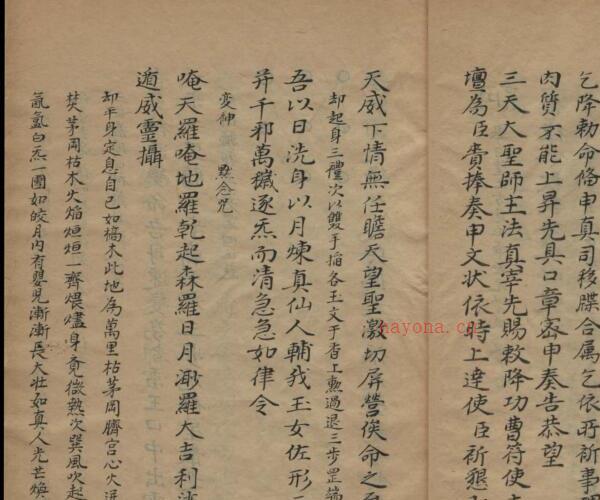 乞降勅命條申真司移牒合属乞依所祈事
肉質不能上昇先具口章密申奏告恭望
三天大聖師主法真宰先賜敕降功曹符使
壇為臣賫捧奏申文状依時上達使臣祈懇
天威下情無任瞻天望聖激切屏營俟命之至
却起身三禮次以雙手搯各玉文于香上熏過退三步罡
吾以日洗身以月煉真仙人輔我玉女佐形
并千邪萬穢逐炁而清急急如律令
変神 黙念咒
唵天羅唵地羅乾起森羅日月渺羅大吉利
遁威靈攝
却平身定息自己如槁木此地為萬里枯茅岡臍宮心火
焚茅岡枯木火焰烜烜一齊煨燼身竟微熱次巽風吹起
氤氳白炁一團如皎月内有嬰児漸漸長大壮如真人光芒煥
nayona.cn